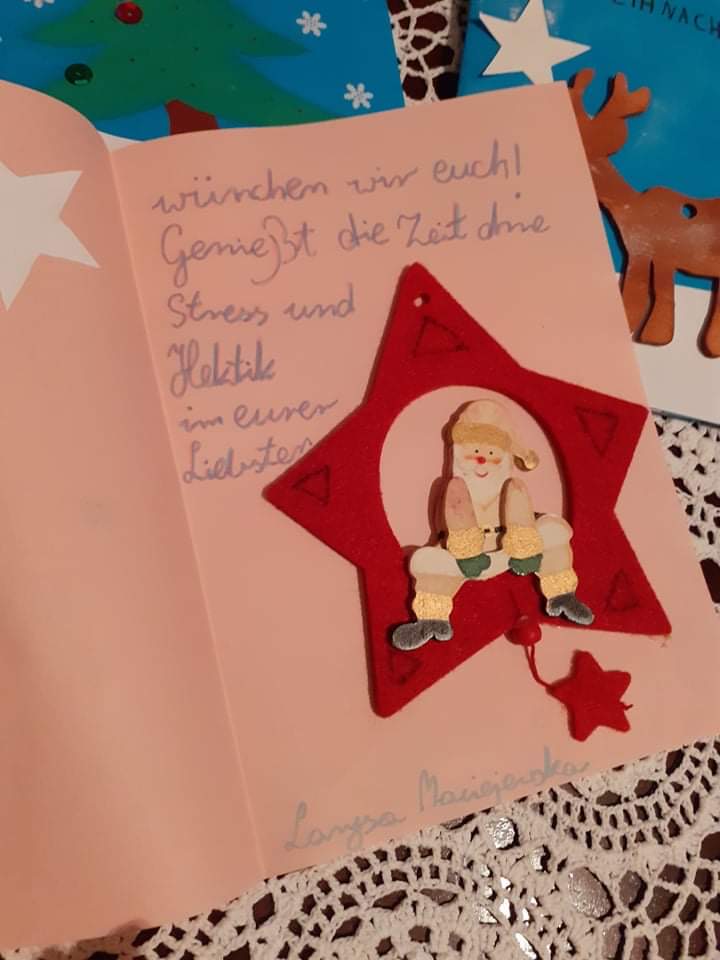 EIHNACH
wünchen wir euch!
Genießt die Zeit ohne
Stress und
Hektik
im eurer
Liebsten
Larysa Maciejewska